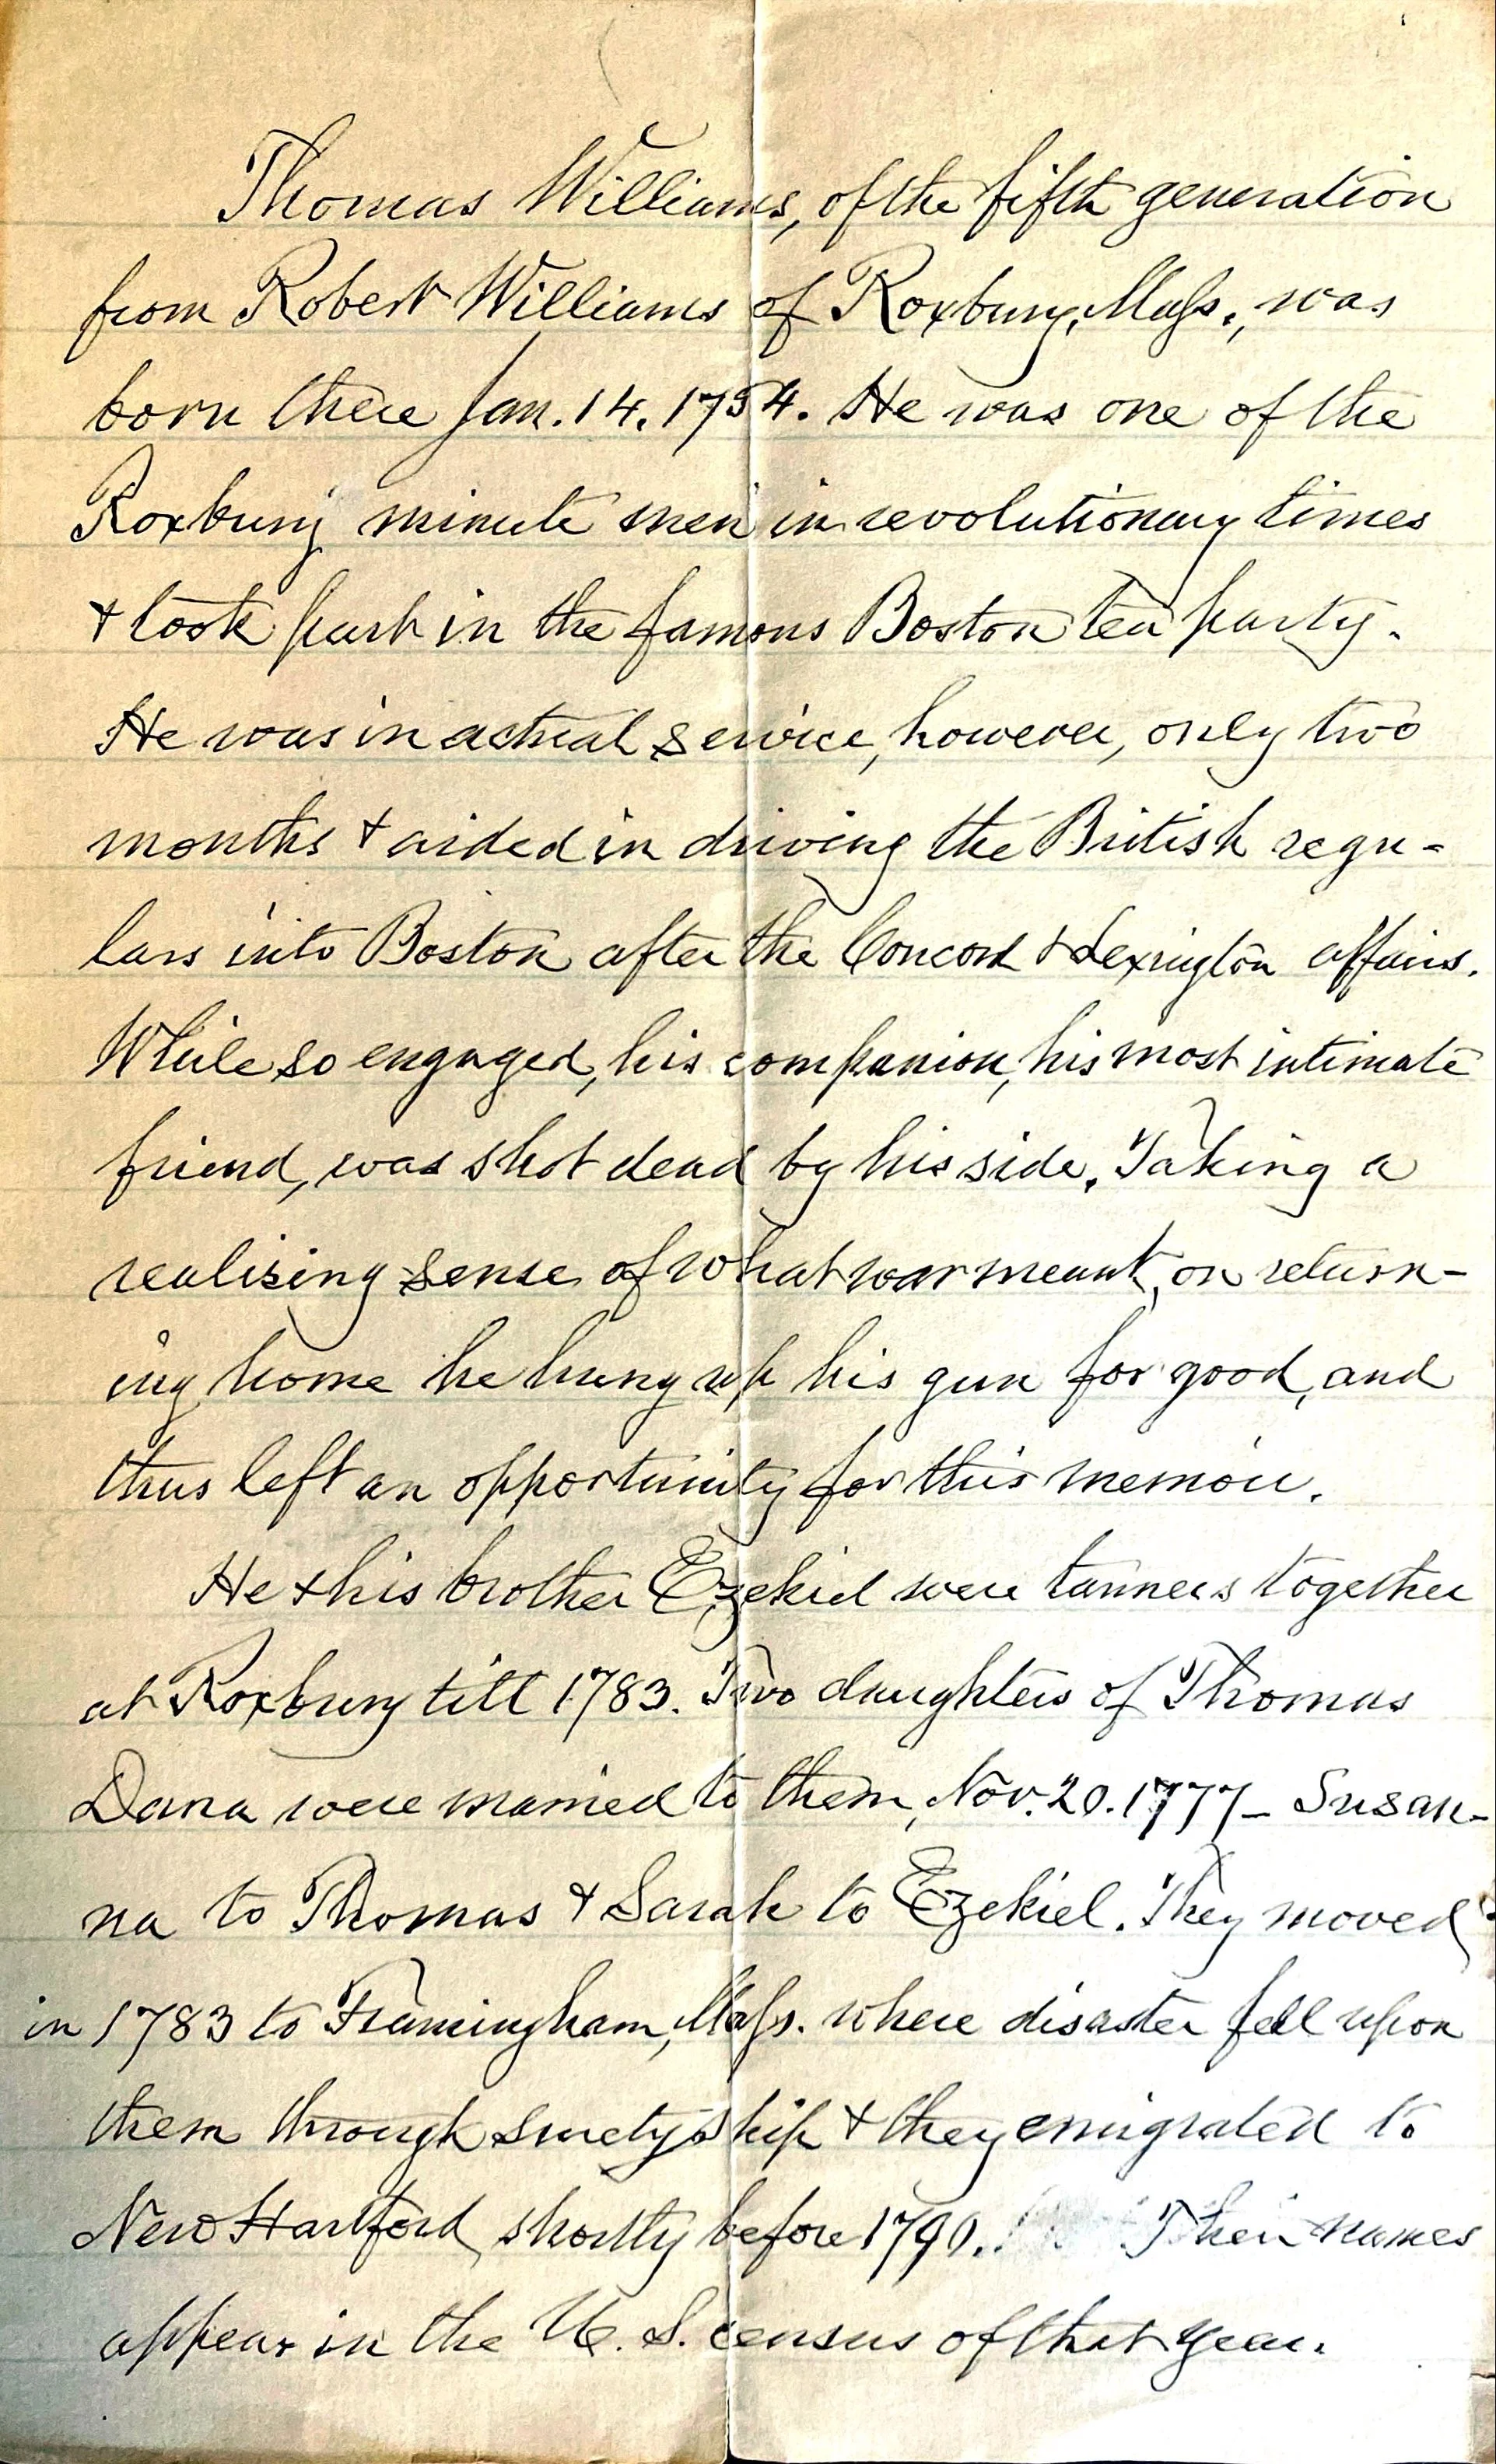 Thomas Williams, of the fifth generation
from Robert Williams of Roxbury, Mass., was
born there Jan. 14. 1754. He was one of the
Roxbury minute men in revolutionary times
& took part in the famous Boston tea party.
He was in actual service, however, only two
months & aided in driving the British regu-
lars into Boston after the Concord & Lexington affairs.
While so engaged, his companion, his most intimate
friend, was shot dead by his side. Taking a
realising sense of what war meant, on return-
ing home he hung up his gun for good, and
thus left an opportunity for this memoir.
He & his brother Ezekiel were tanners together
at Roxbury till 1783. Two daughters of Thomas
Dana were married to them, Nov. 20. 1777 – Susan-
na to Thomas & Sarah to Ezekiel. They moved
in 1783 to Framingham, Mass. where disaster fell upon
them through suretyship & they emigrated to
New Hartford, shortly before 1790. Their names
appear in the U. S. census of that year.